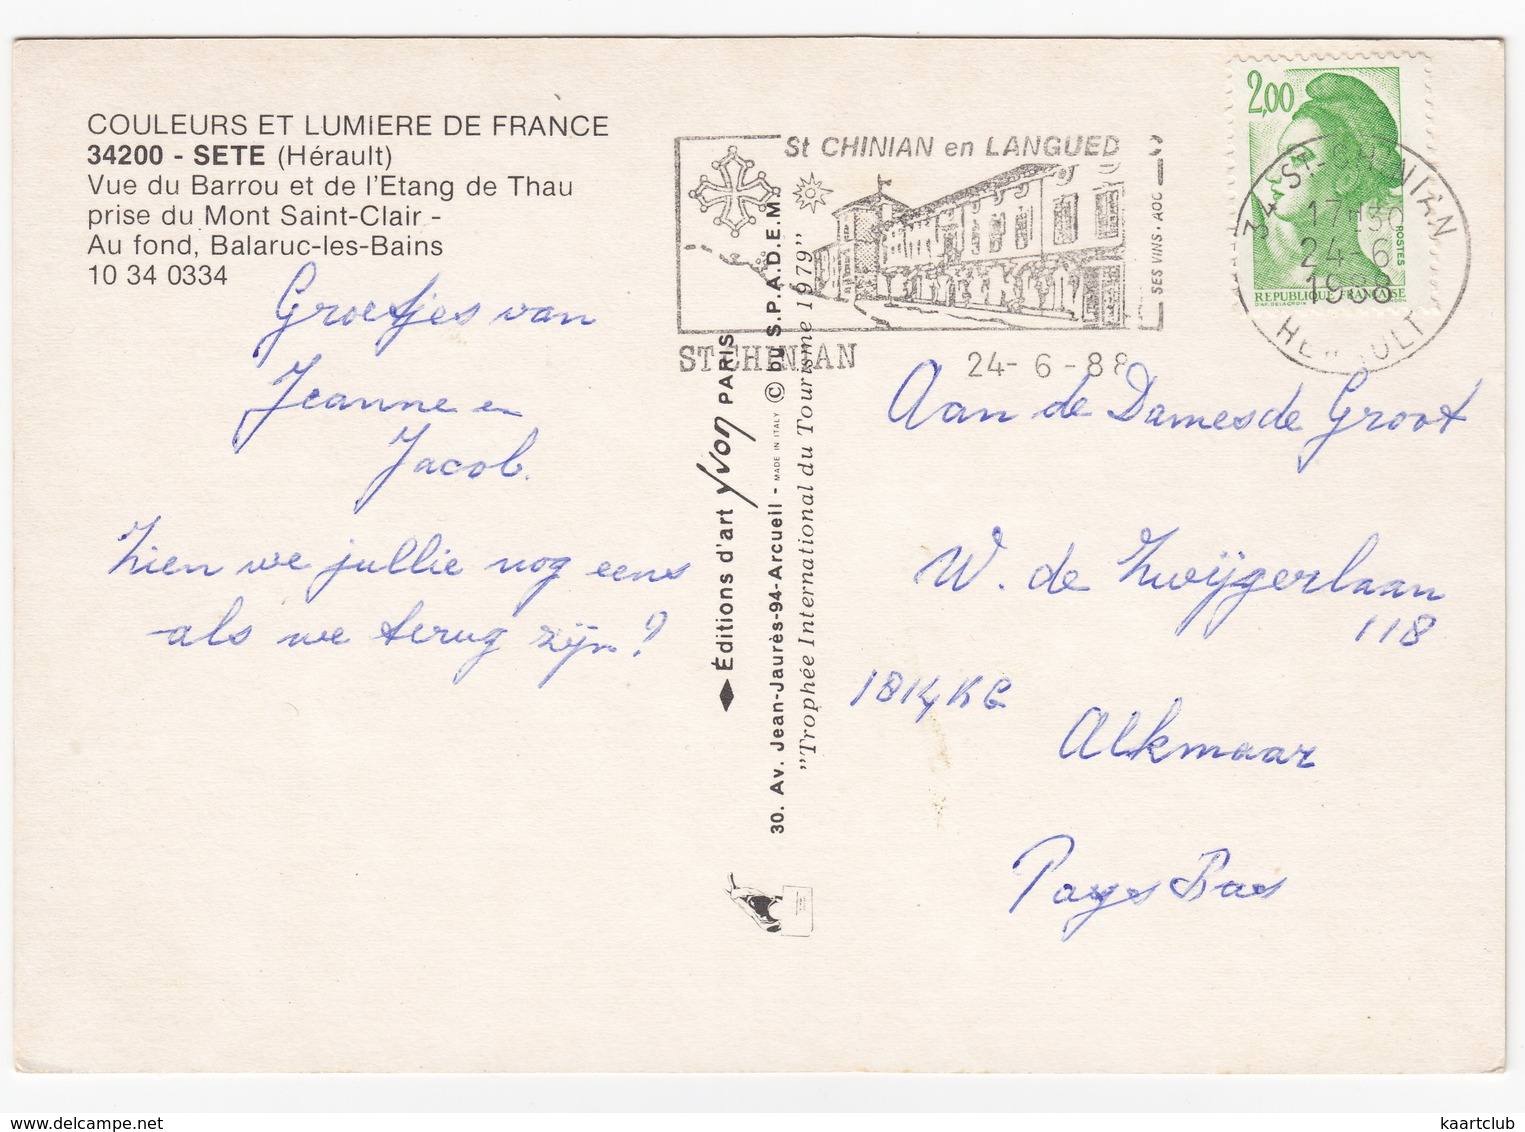 COULEURS ET LUMIERE DE FRANCE
34200 - SETE (Hérault)
Vue du Barrou et de l'Etang de Thau
prise du Mont Saint-Clair -
Au fond, Balaruc-les-Bains
10 34 0334
Groetjes van
Jeanne en
Jacob.
Zien we jullie nog eens
als we terug zijn?
St CHINIAN en LANGUED
SES VINS · AOC
ST CHINIAN
24-6-88
2,00
POSTES
REPUBLIQUE FRANÇAISE
34 ST-CHINIAN
17H30
24-6
1988
HERAULT
Éditions d'art yvon PARIS
30. Av. Jean-Jaurès-94-Arcueil - MADE IN ITALY © bu S.P.A.D.E.M.
"Trophée International du Tourisme 1979"
Aan de Dames de Groot
W. de Zwijgerlaan
118
1814 KG
Alkmaar
Pays Bas
kaartclub